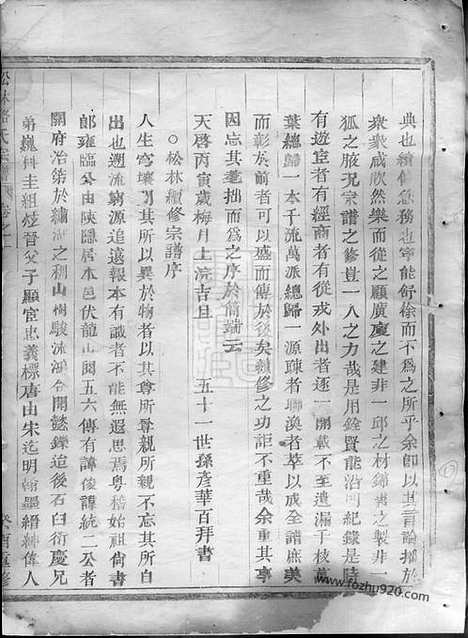 典也續修急務也寧能舒徐而不為之所乎余卽以其言諭於
衆衆咸欣然樂而從之顧廣廈之建非一邱之材錦裘之製非一
狐之腋况宗譜之修豈一人之力哉是用銓賢能洽同紀錄是陸
有遊宦者有經商者有從戎外出者逐一開載不至遺漏于枝蔓
葉總歸一本千流萬派總歸一源踈者聯渙者萃以成全譜庶美
而彰於前者可以盛而傳於後矣續修之功詎不重哉余重其事
因忘其蕪拙而為之序於簡端云
天啓丙寅歲梅月上浣吉旦 五十一世孫彥華百拜書
○松林續修宗譜序
人生穹壤間其異於物者以其尊所尊親所親不忘其所自
出也遡流窮源追遠報本有識者不能無遐思焉粵稽始祖尙書
郎雍臨公由陝隱居本邑伏龍山閱五六傳有諱俊諱統二公者
開府治築於繡湖之利山樹駿流鴻令聞懿鑠迨後石臼衍慶兄
弟巍科圭組燈晉父子顯宦忠義標唐由宋迄明翰墨縉紳偉人
松林 氏宗譜 卷之一
癸酉重修
www.fozhu920.com